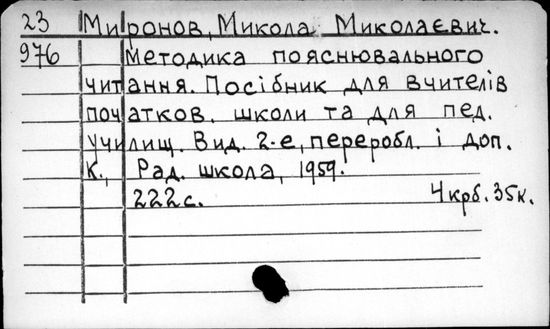 23 Миронов, Микола Миколаєвич.
976 Методика пояснювального
читання. Посібник для вчителів
початков. школи та для пед.
училищ. Вид. 2-е, переробл. і доп.
К., Рад. школа, 1959.
222с. 4крб.35к.